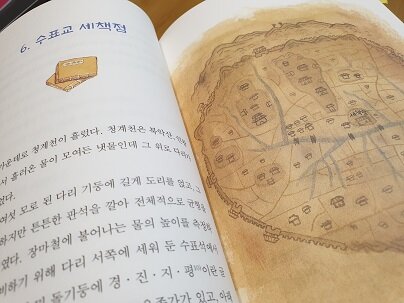 6. 수표교 세책점
가운데로 청계천이 흘렀다. 청계천은 북악산, 인왕
서 흘러온 물이 모여든 냇물인데 그 위로 다리가
였다.
여섯 모로 된 다리 기둥에 길게 도리를 얹고, 그
하지만 튼튼한 판석을 깔아 전체적으로 균형을
였다. 장마철에 불어나는 물의 높이를 측정하
비하기 위해 다리 서쪽에 세워 둔 수표석에서
돌기둥에 경·진·지·평이란 글
가 있고, 아래